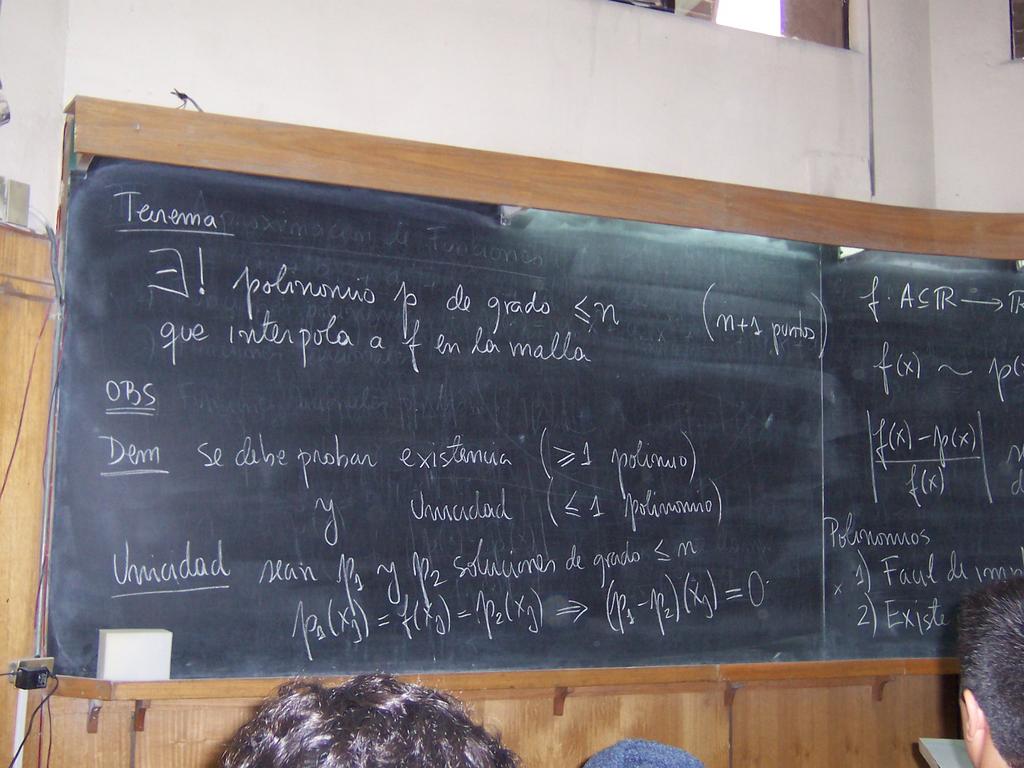 Teorema
∃! polinomio p de grado ≤ n (n+1 puntos)
que interpola a f en la malla
OBS
Dem se debe probar existencia (≥ 1 polinuio)
y Unicidad (≤ 1 polinomio)
Unicidad sean p₁ y p₂ soluciones de grado ≤ n
p₁(xⱼ) = f(xⱼ) = p₂(xⱼ) ⇒ (p₁-p₂)(xⱼ) = 0
f: A ⊆ ℝ → ℝ
f(x) ~ p(x
|f(x) - p(x) / f(x)|
Polinomios
x 1) Facil de
2) Existe